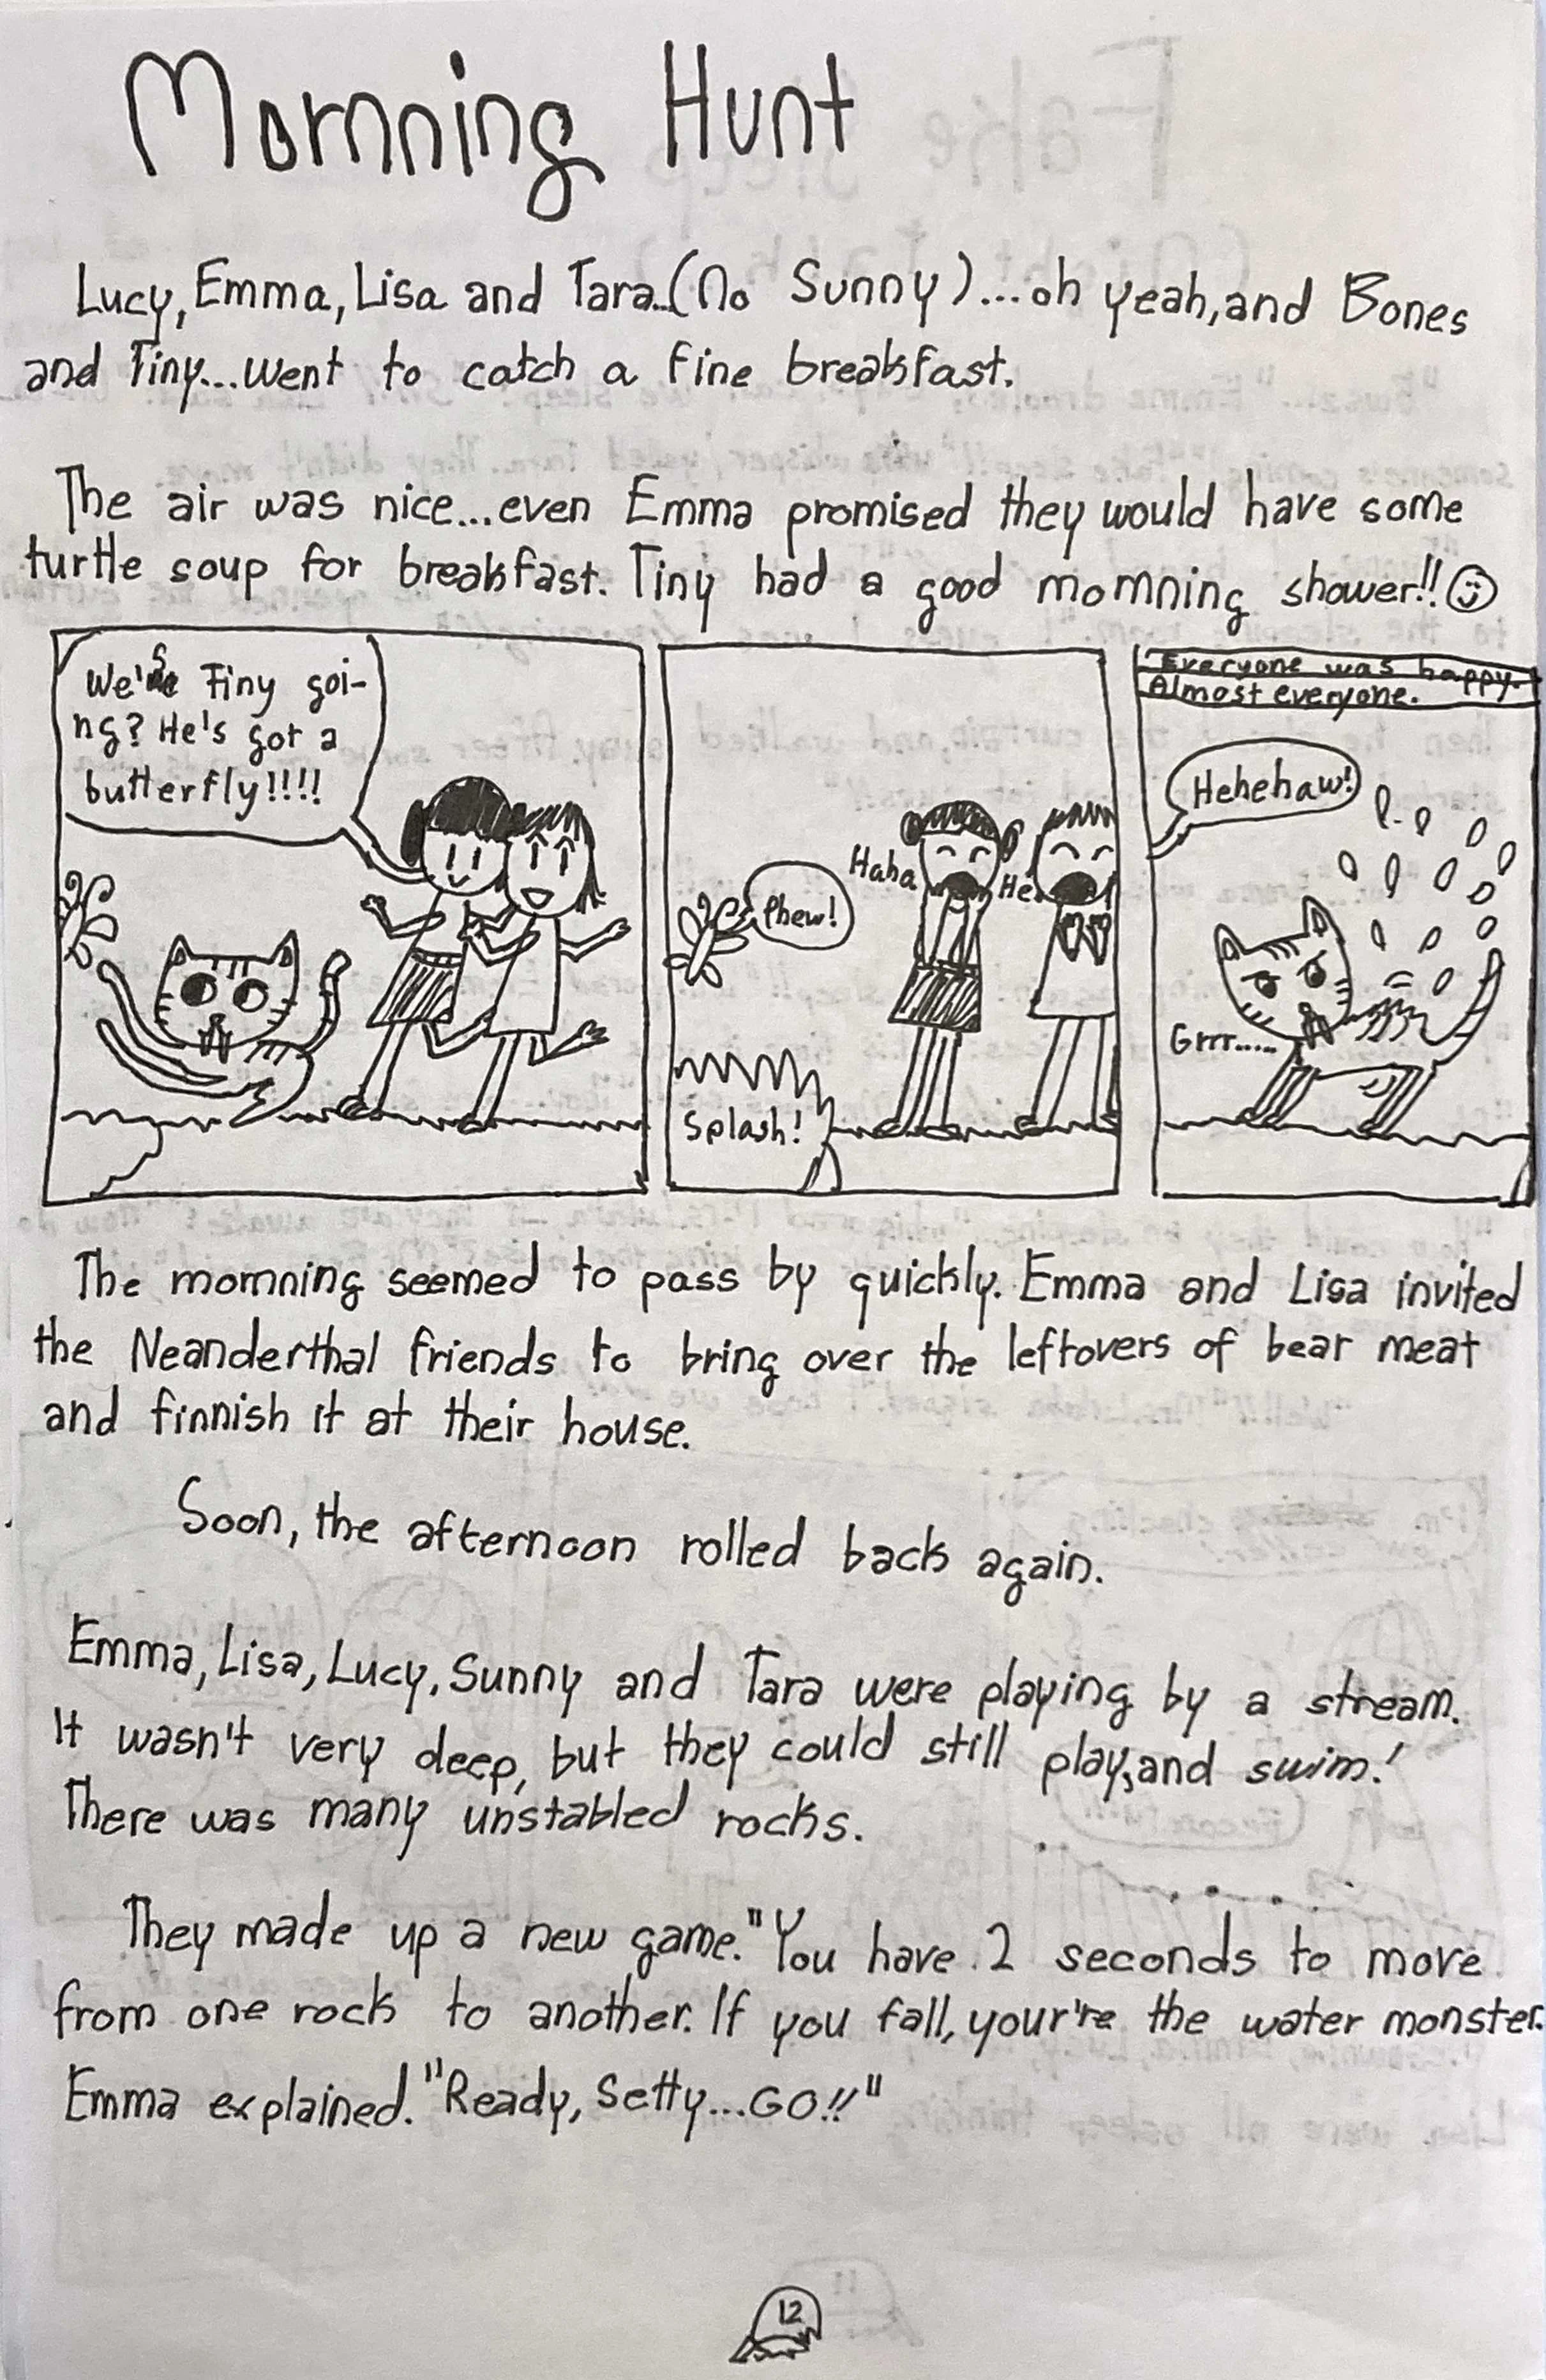 Mornning Hunt
Lucy, Emma, Lisa and Tara..(No Sunny)...oh yeah, and Bones
and Tiny...went to catch a fine breakfast.
The air was nice...even Emma promised they would have some
turtle soup for breakfast. Tiny had a good mornning shower!!
Tiny goi-
ng? He's got a
butterfly!!!!
Phew!
Haha
He
Splash!
Everyone was happy.
Almost everyone.
Hehehaw!
Grrr.....
The mornning seemed to pass by quickly. Emma and Lisa invited
the Neanderthal friends to bring over the leftovers of bear meat
and finnish it at their house.
Soon, the afternoon rolled back again.
Emma, Lisa, Lucy, Sunny and Tara were playing by a stream.
It wasn't very deep, but they could still play, and swim!
There was many unstabled rocks.
They made up a new game. "You have 2 seconds to move
from one rock to another. If you fall, your're the water monster.
Emma explained. "Ready, Setty...GO!!"
12